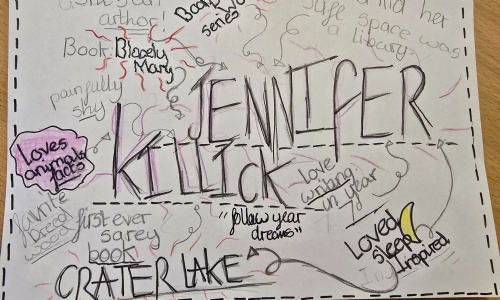 author!
Book
series
a kid her
safe space was
a library
Book: Bloody
Mary
painfully
shy
JENNIFER
KILLICK
Loves
animals
facts
Love
writing
in year
"follow year
dreams"
first ever
scarey
book
CRATER LAKE
Loved
sleep
Inspired